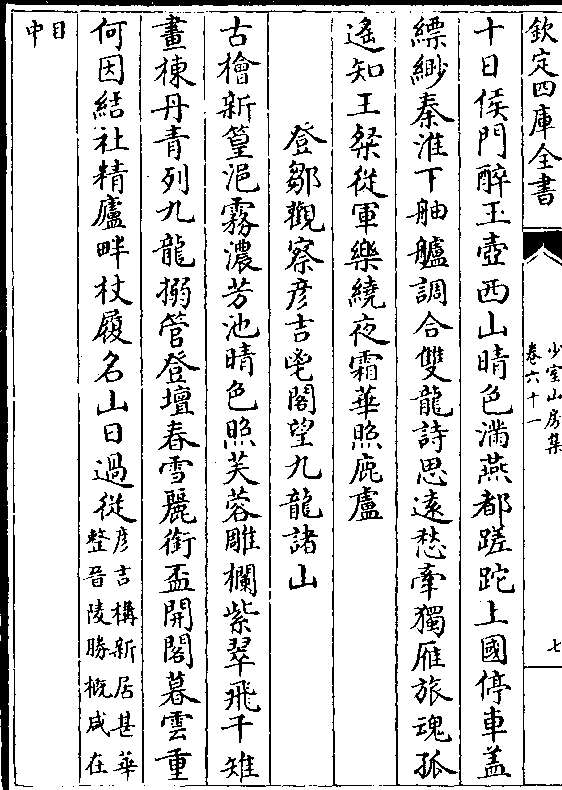 欽定四庫全書
少室山房集
卷六十一
七
十日侯門醉玉壺西山晴色滿燕都蹉跎上國停車盖
縹緲秦淮下舳艫調合雙龍詩思遠愁牽獨雁旅魂孤
遙知王粲從軍樂繞夜霜華照鹿盧
登鄒觀察彦吉閣望九龍諸山
古檜新篁浥霧濃芳池晴色照芙蓉雕欄紫翠飛千雉
畫棟丹青列九龍搦管登壇春雪麗銜盃開閣暮雲重
何因結社精廬畔杖履名山日過從
彦吉構新居甚華
整晉陵勝概咸在
目
中